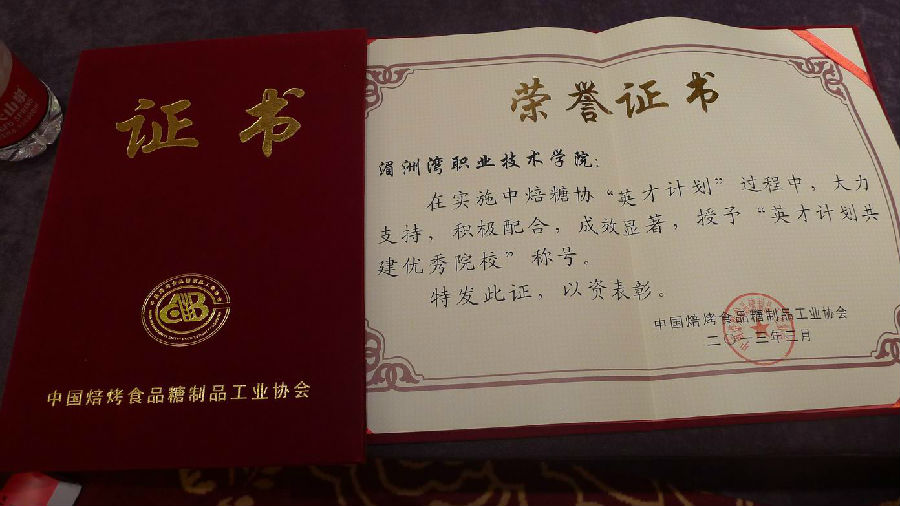 证书
中国焙烤食品糖制品工业协会
荣誉证书
湄洲湾职业技术学院:
在实施中焙糖协“英才计划”过程中,大力
支持,积极配合,成效显著,授予“英才计划共
建优秀院校”称号。
特发此证,以资表彰。
中国焙烤食品糖制品工业协会
二〇一三年三月